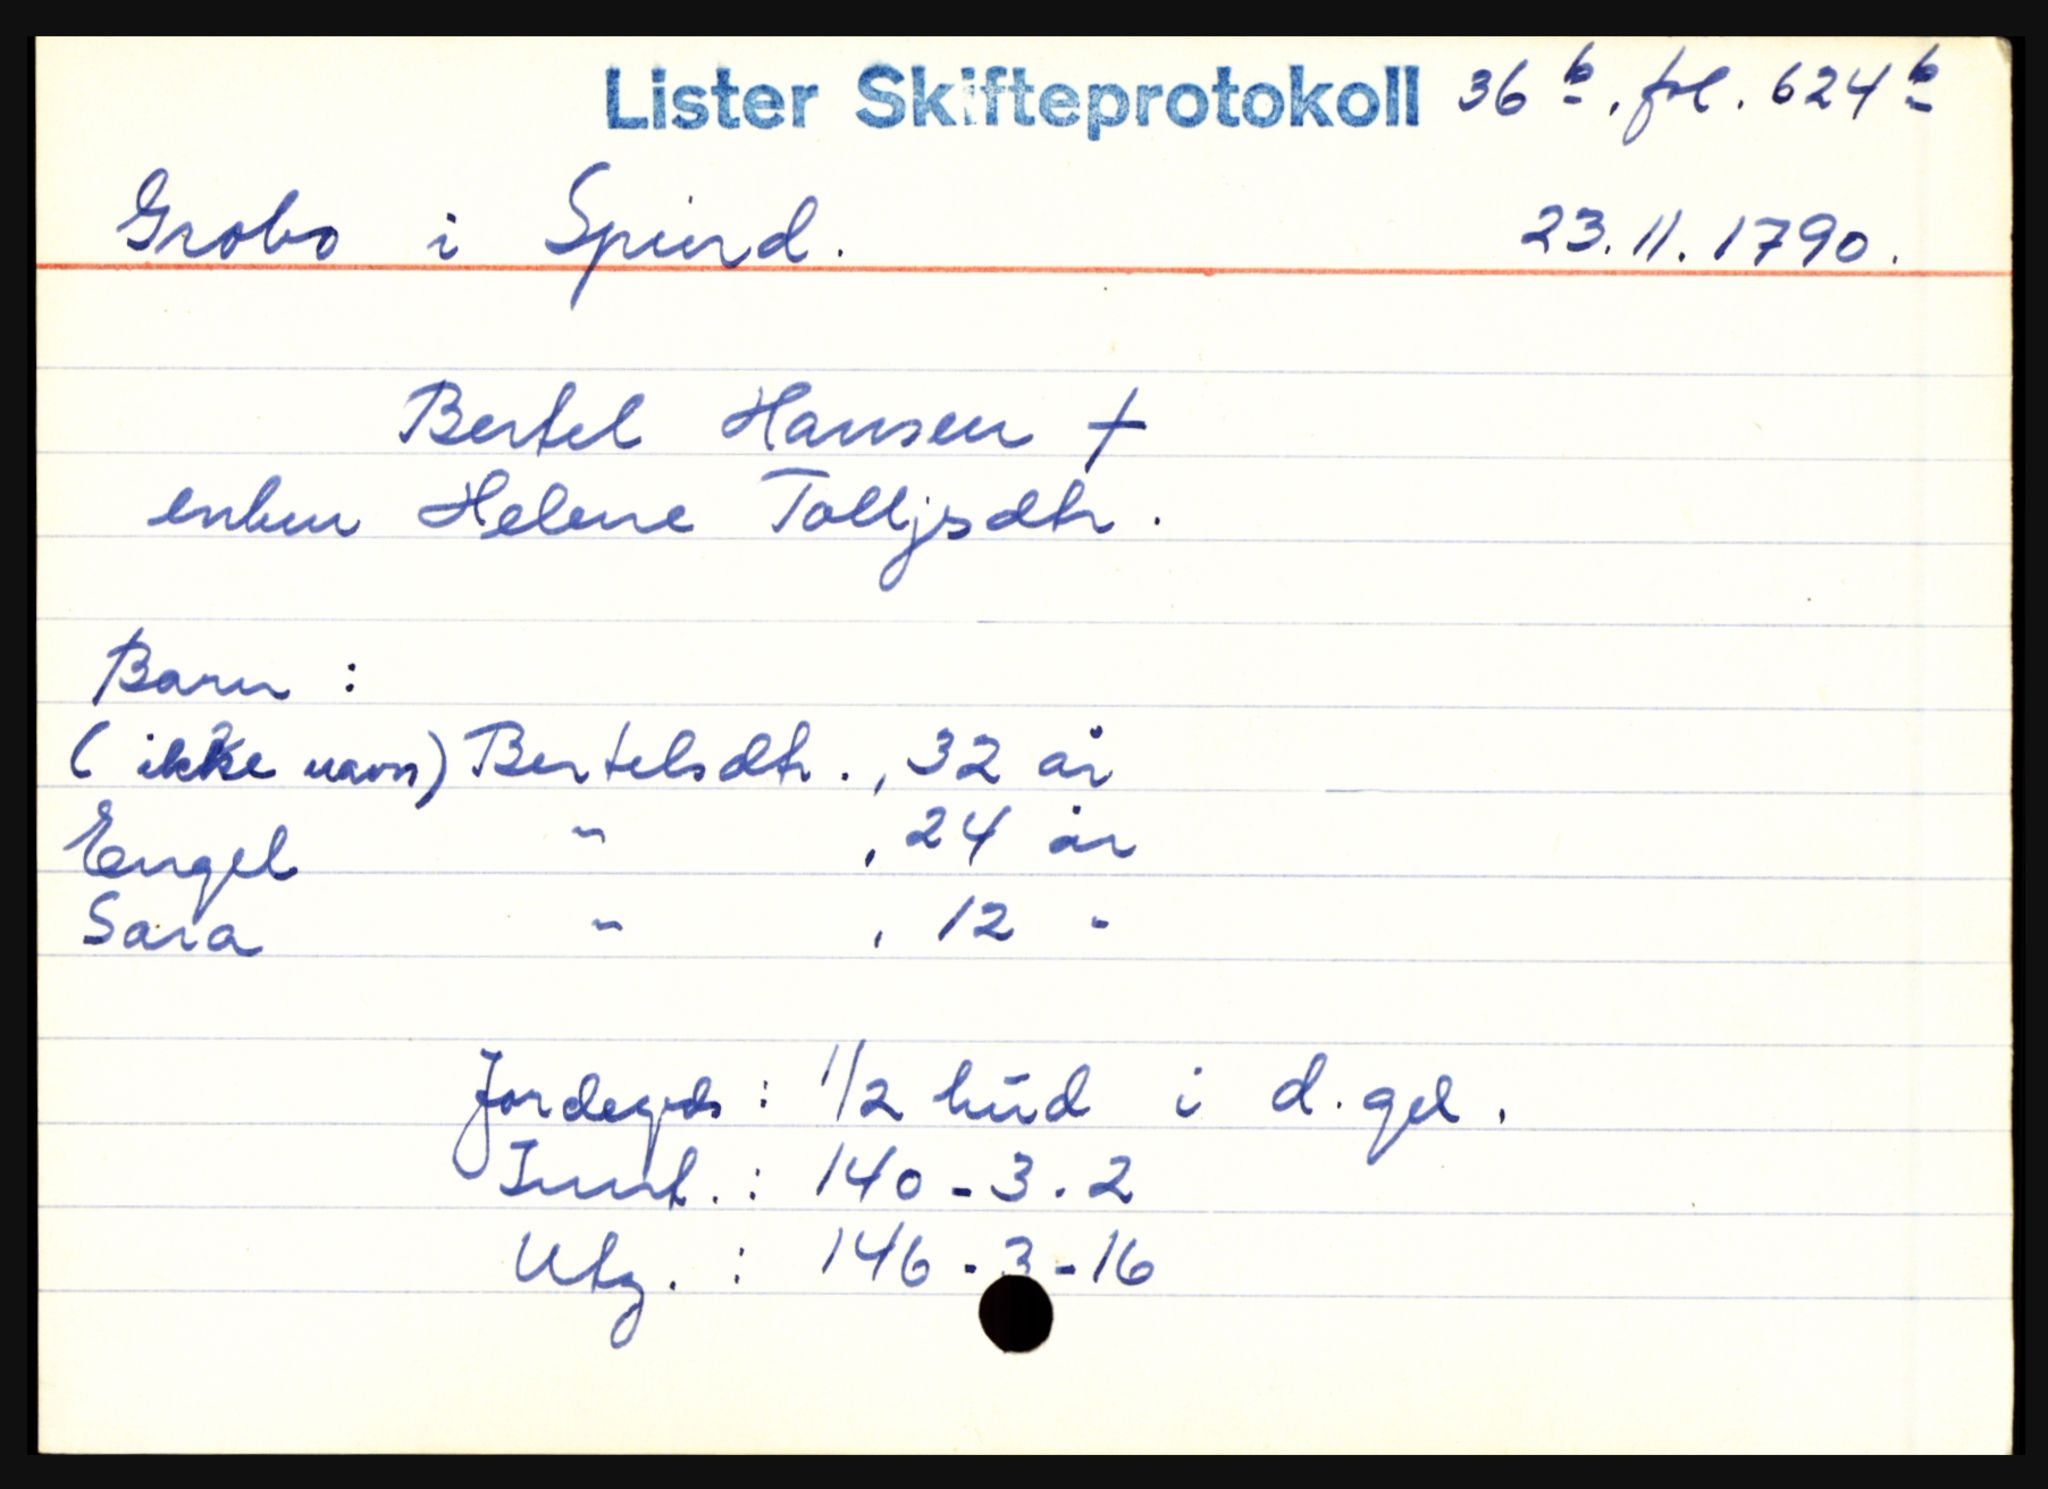 Lister Skifteprotokoll 36 b, fol. 624 b
Grobo i Spind. 23.11.1790.
Bertel Hansen †
enken Helene Tolljsdtr.
Barn :
( ikke navn) Bertelsdtr., 32 år
Engel " , 24 år
Sara " , 12 "
Jordegods : 1/2 hud i d. gd.
Innt. : 140 - 3 - 2
Utg. : 146 - 3 - 16